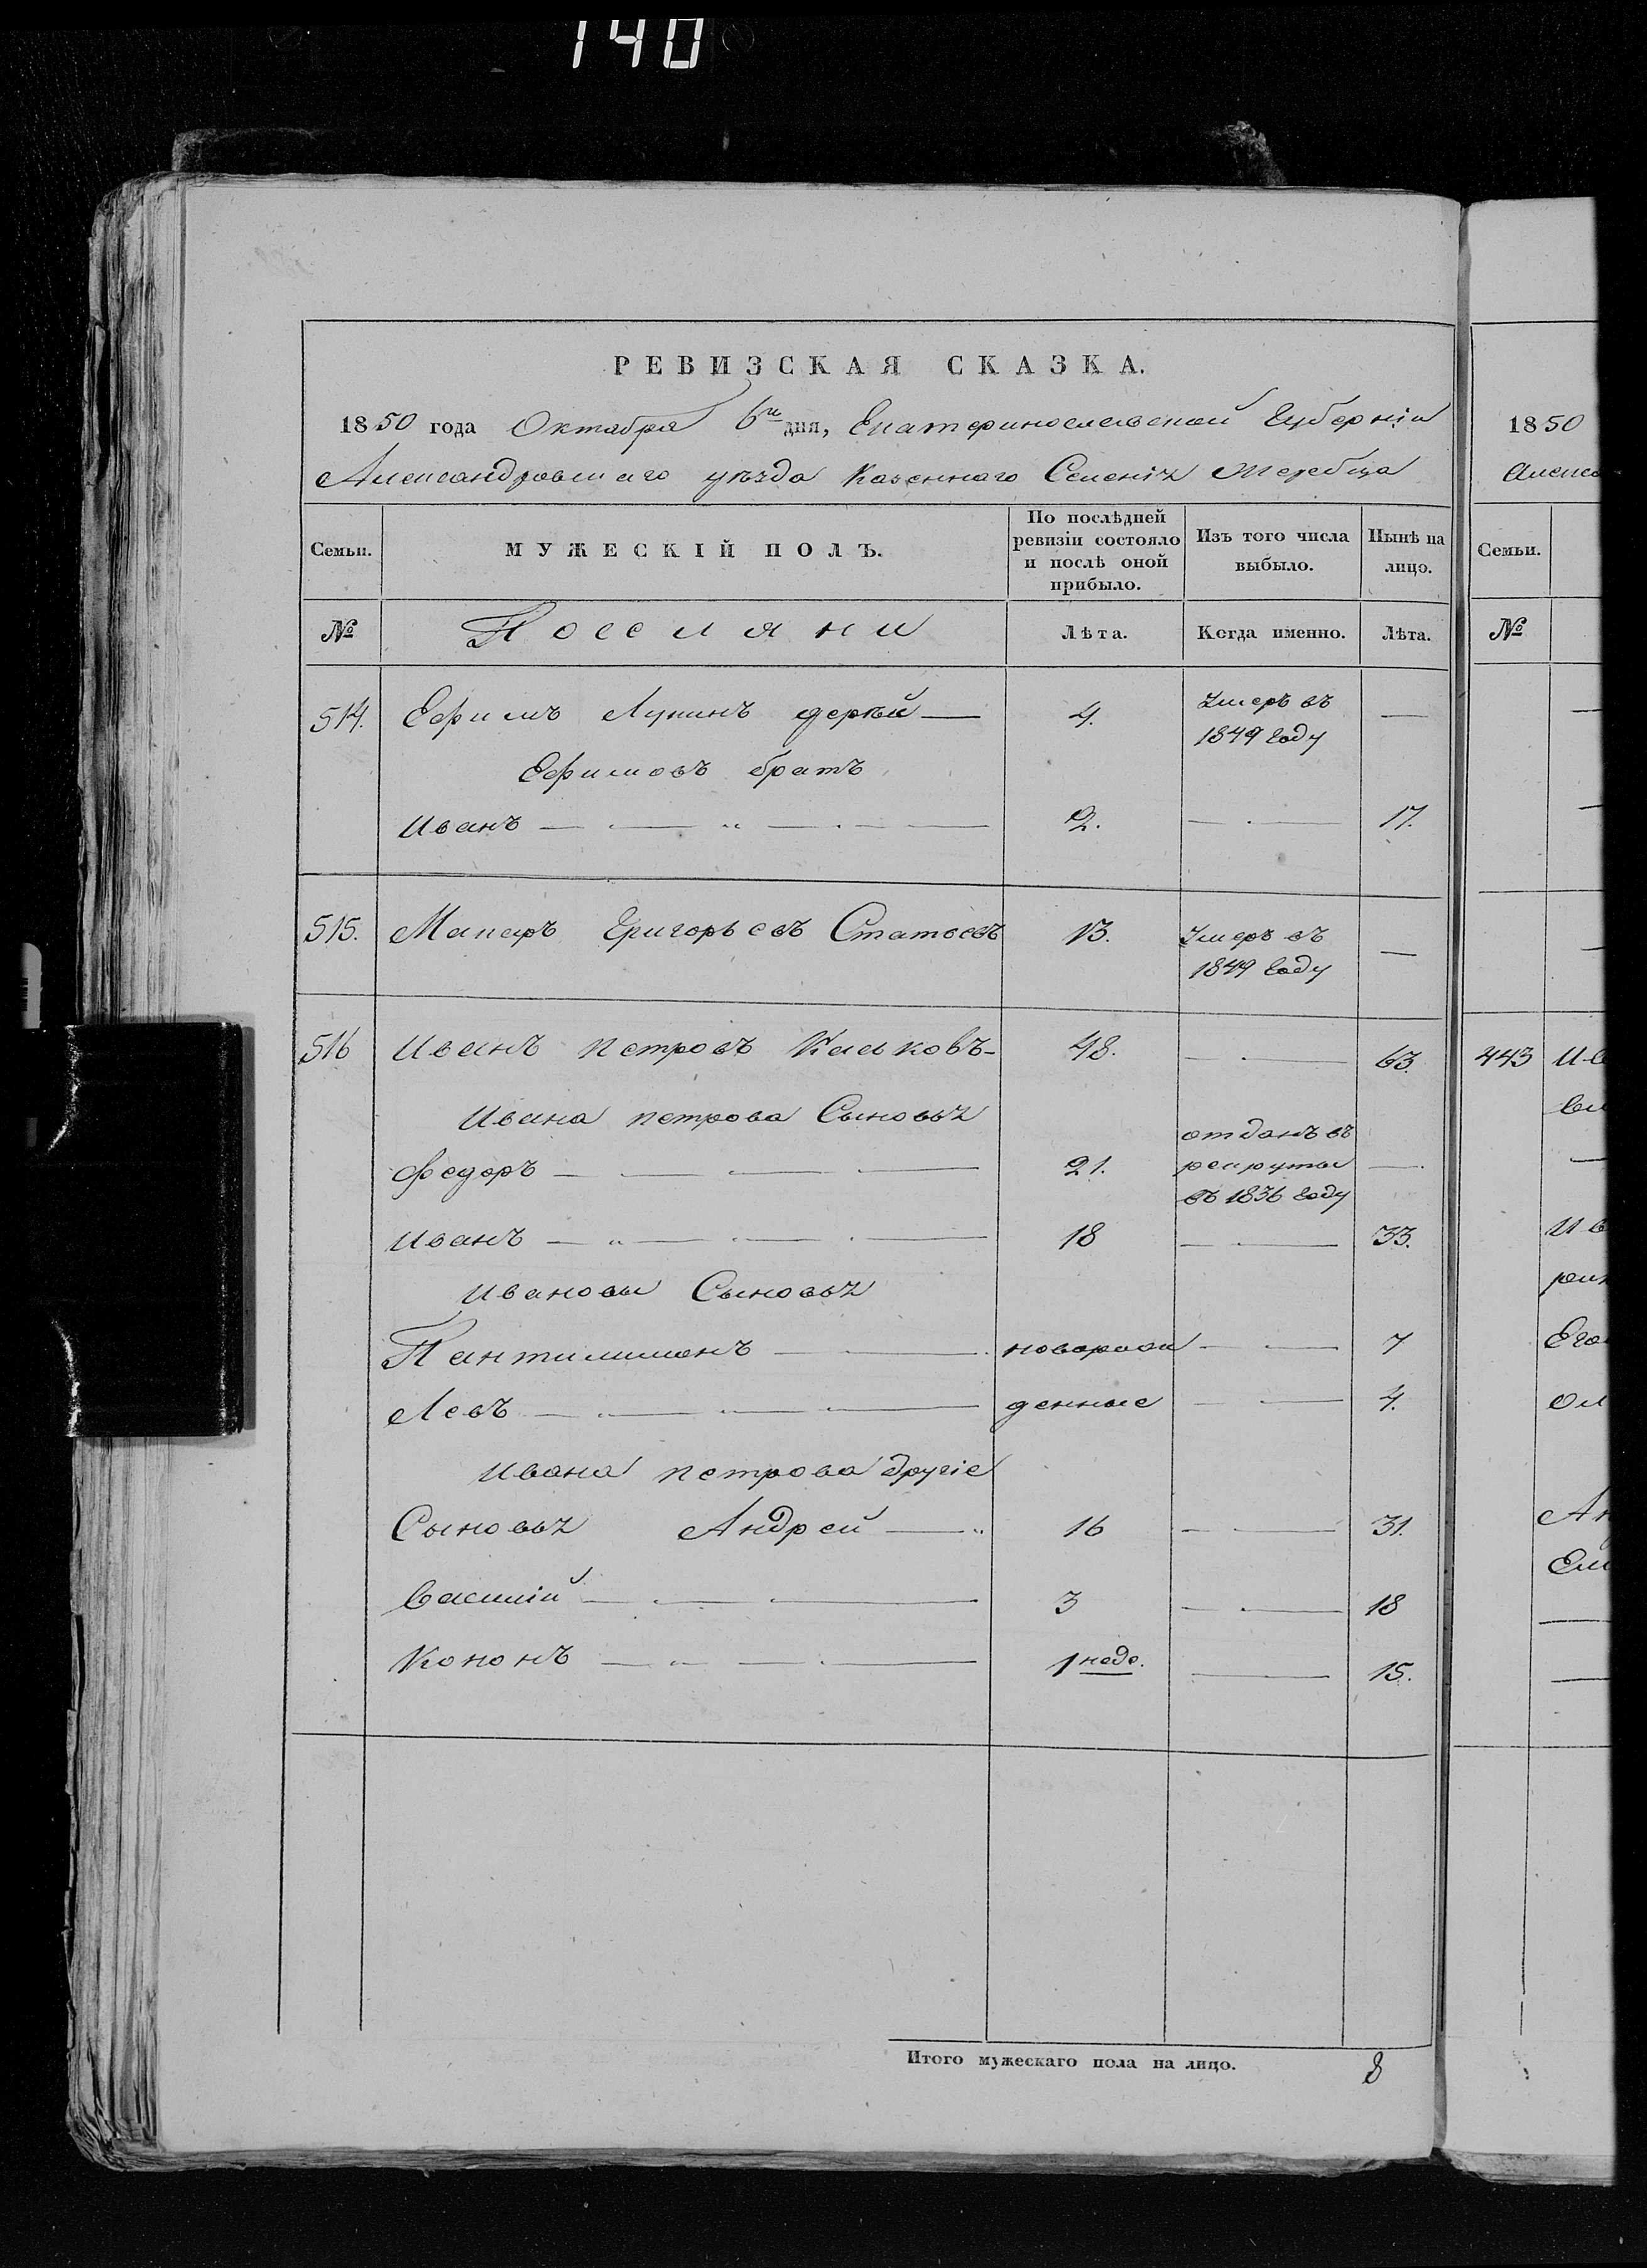 140
РЕВИЗСКАЯ СКАЗКА.
1850 года Октября 6го дня, Екатеринославской Губерніи
Александровскаго уѣзда Казеннаго Селенія Жеребца
Семьи. МУЖЕСКІЙ ПОЛЪ. По послѣдней ревизіи состояло и послѣ оной прибыло. Изъ того числа выбыло. Нынѣ на лицо.
№ Поселяни Лѣта. Когда именно. Лѣта.
514. Ефимъ Лукинъ 4. Умеръ въ 1849 Году —
Ефимовъ братъ
Иванъ 2. — 17.
515. Макаръ Григорьевъ Статьевъ 13. Умеръ въ 1849 Году —
516 Иванъ Петровъ 48. — 63.
Ивана петрова Сыновья
Федоръ 21. отданъ въ рекруты въ 1836 Году —
Иванъ 18 — 33.
Ивановы Сыновья
Пантилимонъ новорож — 7
Левъ денные — 4.
Ивана петрова другіе
Сыновья Андрей 16 — 31.
Василій 3 — 18
Кононъ 1 неде. — 15.
Итого мужескаго пола на лицо. 8
1850
Алекса
Семьи.
№
443 Ив
Ив
Его
Ан